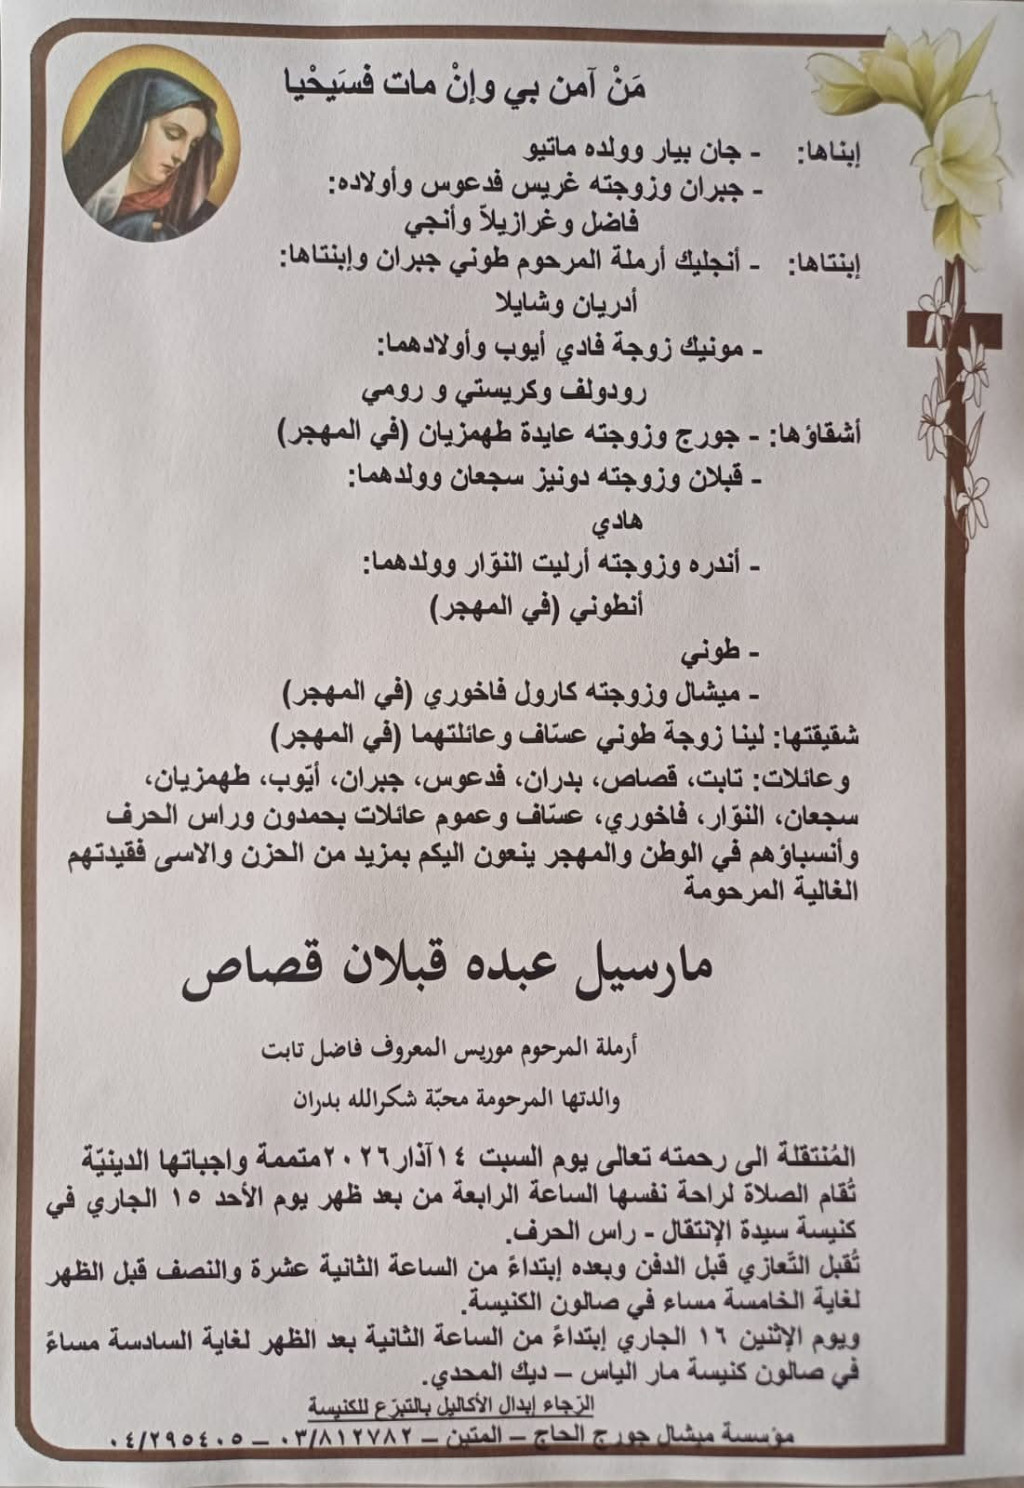 مَنْ آمن بي وإنْ مات فسَيحْيا
إبناها: - جان بيار وولده ماتيو
- جبران وزوجته غريس فدعوس وأولاده:
فاضل وغرازيلاّ وأنجي
إبنتاها: - أنجليك أرملة المرحوم طوني جبران وإبنتاها:
أدريان وشايلا
- مونيك زوجة فادي أيوب وأولادهما:
رودولف وكريستي و رومي
أشقاؤها: - جورج وزوجته عايدة طهمزيان (في المهجر)
- قبلان وزوجته دونيز سجعان وولدهما:
هادي
- أندره وزوجته أرليت النوّار وولدهما:
أنطوني (في المهجر)
- طوني
- ميشال وزوجته كارول فاخوري (في المهجر)
شقيقتها: لينا زوجة طوني عسّاف وعائلتهما (في المهجر)
وعائلات: تابت، قصاص، بدران، فدعوس، جبران، أيّوب، طهمزيان،
سجعان، النوّار، فاخوري، عسّاف وعموم عائلات بحمدون وراس الحرف
وأنسباؤهم في الوطن والمهجر ينعون اليكم بمزيد من الحزن والاسى فقيدتهم
الغالية المرحومة
مارسيل عبده قبلان قصاص
أرملة المرحوم موريس المعروف فاضل تابت
والدتها المرحومة محبّة شكرالله بدران
المُنتقلة الى رحمته تعالى يوم السبت ١٤آذار٢٠٢٦متممة واجباتها الدينيّة
تُقام الصلاة لراحة نفسها الساعة الرابعة من بعد ظهر يوم الأحد ١٥ الجاري في
كنيسة سيدة الإنتقال - راس الحرف.
تُقبل التَّعازي قبل الدفن وبعده إبتداءً من الساعة الثانية عشرة والنصف قبل الظهر
لغاية الخامسة مساء في صالون الكنيسة.
ويوم الإثنين ١٦ الجاري إبتداءً من الساعة الثانية بعد الظهر لغاية السادسة مساءً
في صالون كنيسة مار الياس – ديك المحدي.
الرّجاء إبدال الأكاليل بالتبرّع للكنيسة
مؤسسة ميشال جورج الحاج – المتين – ٠٣/٨١٢٧٨٢ – ٠٤/٢٩٥٤٠٥